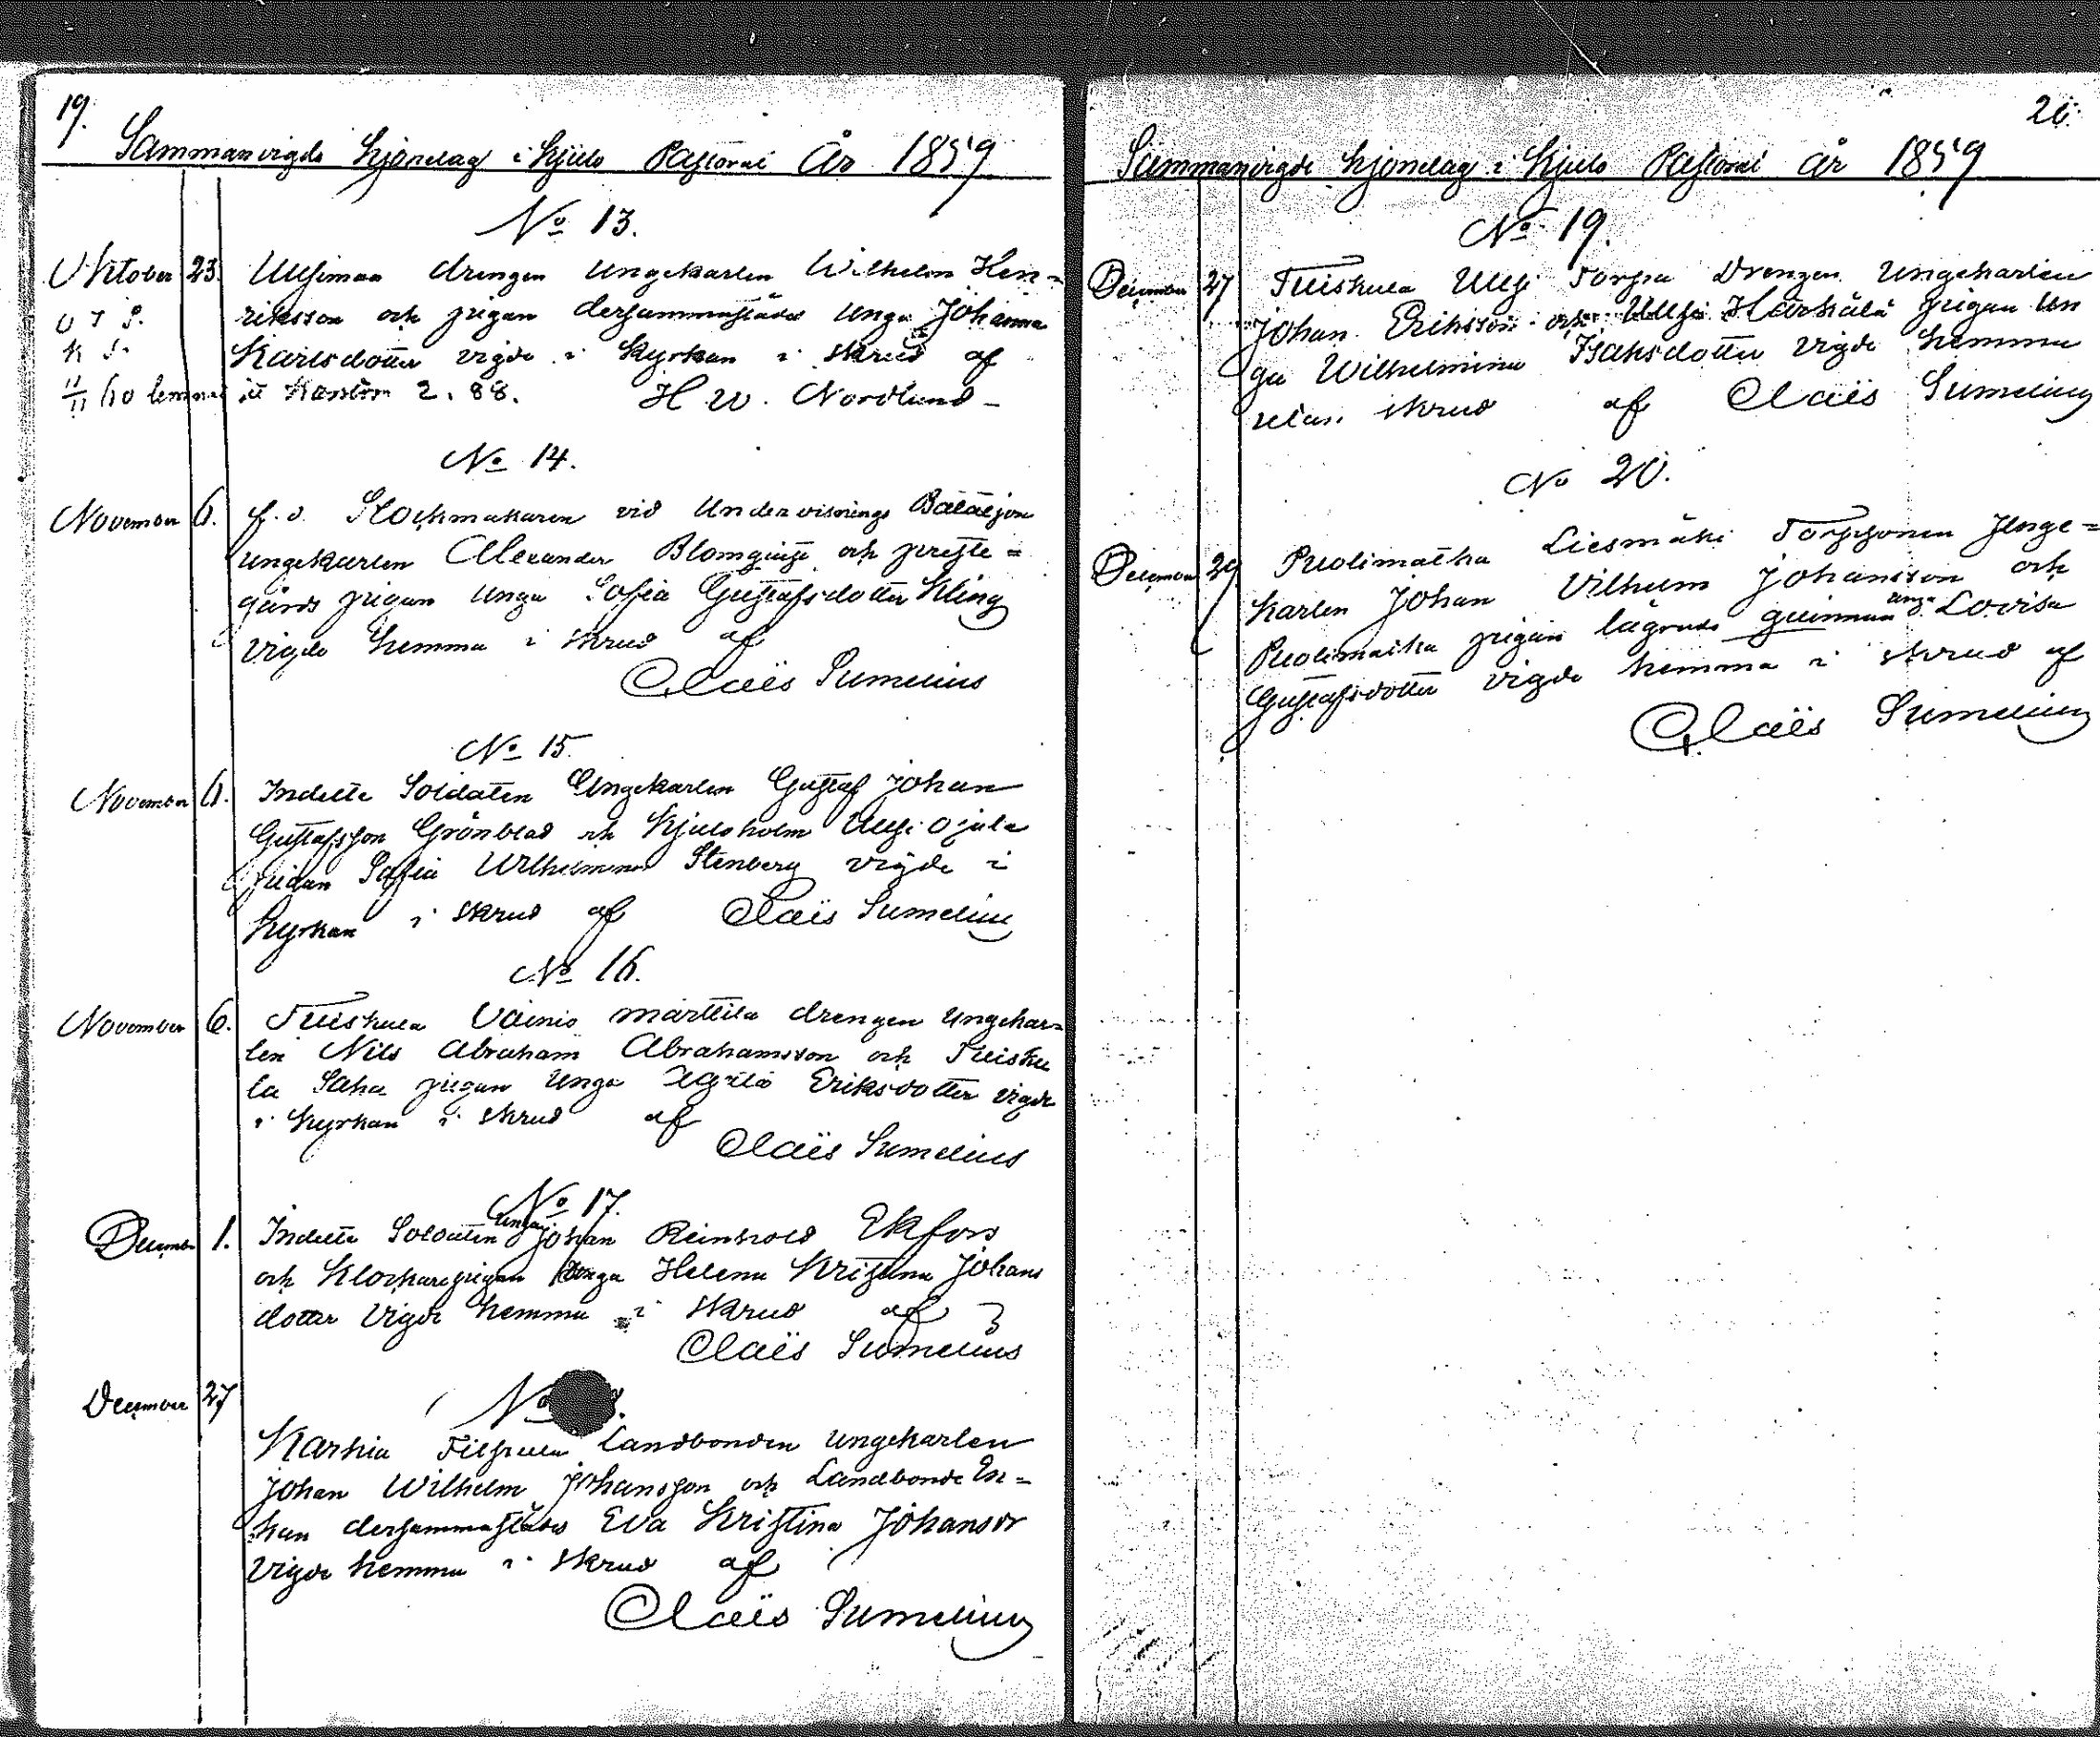 19.
Sammanvigde hjonelag i Kjulo Pastorat År 1859
No 13.
Oktober 23. Uusimaa drengen Ungekarlen Wilhelm Hen=
riksson och pigan dersammastädes Unga Johanna
Karlsdotter vigde i Kyrkan i skrud af
2. 88. H W. Nordlund
No 14.
November 6. f. d. Klockmakaren vid Undervisnings Bataljon
ungekarlen Alexander Blomqvist och preste=
gårds pigan Unga Sofia Gustafsdotter Kling
vigde hemma i skrud af
Claës Sumelius
No 15.
November 6. Indelte Soldaten Ungekarlen Gustaf Johan
Gustafsson Grönblad och Kjuloholm Ojala
pigan Sofia Wilhelmina Stenberg vigde i
Kyrkan i skrud af Claës Sumelius
No 16.
November 6. Tuiskula Vainio Marttila drengen Ungekar=
len Nils Abraham Abrahamsson och Tuisku
la Saha pigan Unga Agata Eriksdotter vigde
i Kyrkan i skrud af
Claës Sumelius
No 17.
December 1. Indelte Soldaten Unga Johan Reinhold Ekfors
och Klockarepigan Unga Helena Kristina Johans
dotter vigde hemma i skrud af
Claës Sumelius
December 27 No 8.
Karhia Filppula Landbonden Ungekarlen
Johan Wilhelm Johansson och Landbonde En=
kan dersammastädes Eva Kristina Johansdr
vigde hemma i skrud af
Claës Sumelius
20.
Sammanvigde hjonelag i Kjulo Pastorat År 1859
No 19.
December 27 Tuiskula Torppa Drengen Ungekarlen
Johan Eriksson och Härkälä pigan Un
ga Wilhelmina Isaksdotter vigde hemma
utan skrud af Claës Sumelius
No 20.
December 29 Puolimatka Liesmäki Torpparen Unge=
karlen Johan Vilhelm Johansson och
Puolimatka pigan lägrade qvinnan unga Lovisa
Gustafsdotter vigde hemma i skrud af
Claës Sumelius